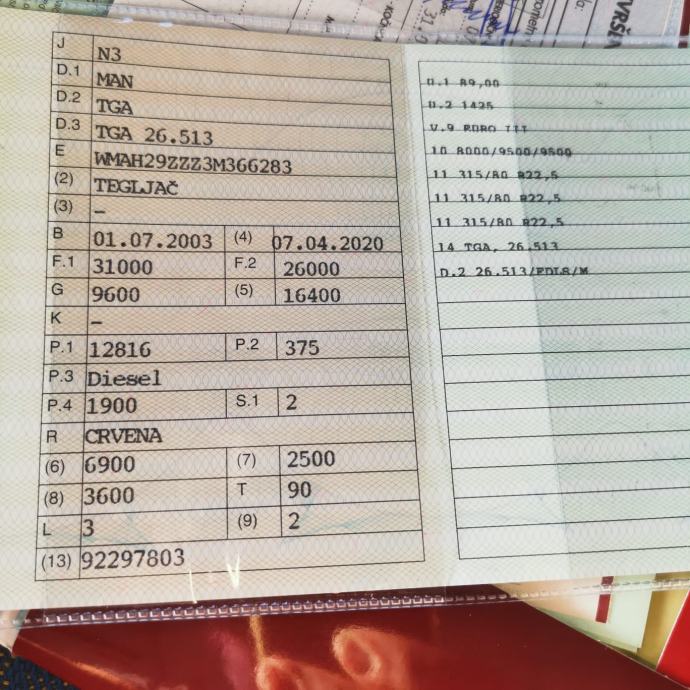 TVRŠEN
J N3
D.1 MAN
D.2 TGA
D.3 TGA 26.513
E WMAH29ZZZ3M366283
(2) TEGLJAČ
(3) –
B 01.07.2003 (4) 07.04.2020
F.1 31000 F.2 26000
G 9600 (5) 16400
K –
P.1 12816 P.2 375
P.3 Diesel
P.4 1900 S.1 2
R CRVENA
(6) 6900 (7) 2500
(8) 3600 T 90
L 3 (9) 2
(13) 92297803
U.1 89,00
U.2 1425
V.9 EURO III
10 8000/9500/9500
11 315/80 R22,5
11 315/80 R22,5
11 315/80 R22,5
14 TGA, 26.513
D.2 26.513/FDLS/M